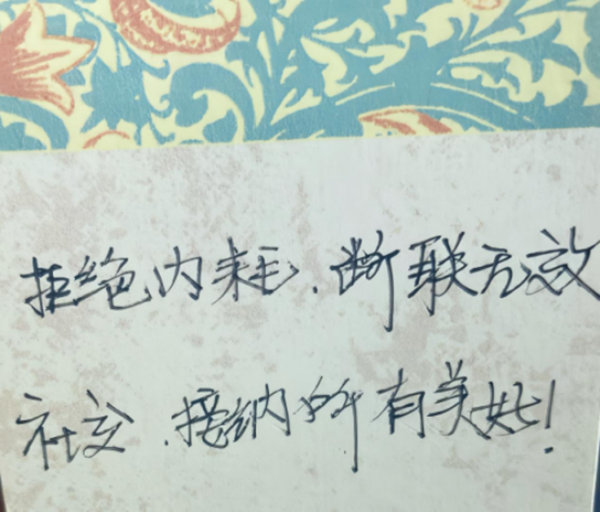 拒绝内耗.断联无效
社交.接纳所有美好!